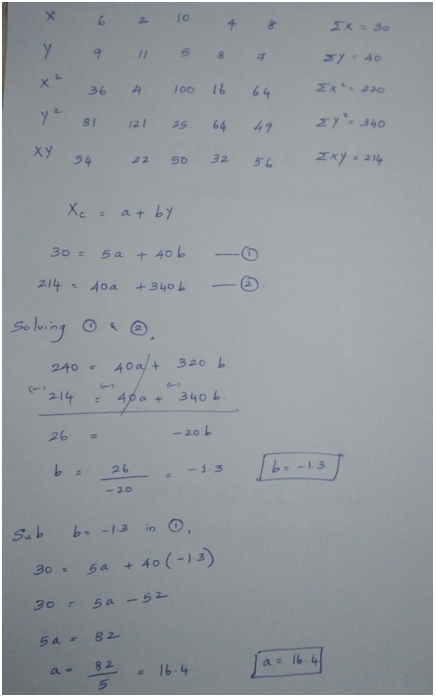 X 6 2 10 4 8 ΣX = 30
Y 9 11 5 8 7 ΣY = 40
X² 36 4 100 16 64 ΣX² = 220
Y² 81 121 25 64 49 ΣY² = 340
XY 54 22 50 32 56 ΣXY = 214
Xc = a + bY
30 = 5a + 40b — ①
214 = 40a + 340b — ②.
Solving ① & ②,
240 = 40a + 320 b
(-) 214 (-) = 40a + (-) 340 b
26 = -20b
b = 26/-20 = -1.3 b = -1.3
Sub b = -1.3 in ①,
30 = 5a + 40(-1.3)
30 = 5a - 52
5a = 82
a = 82/5 = 16.4 a = 16.4